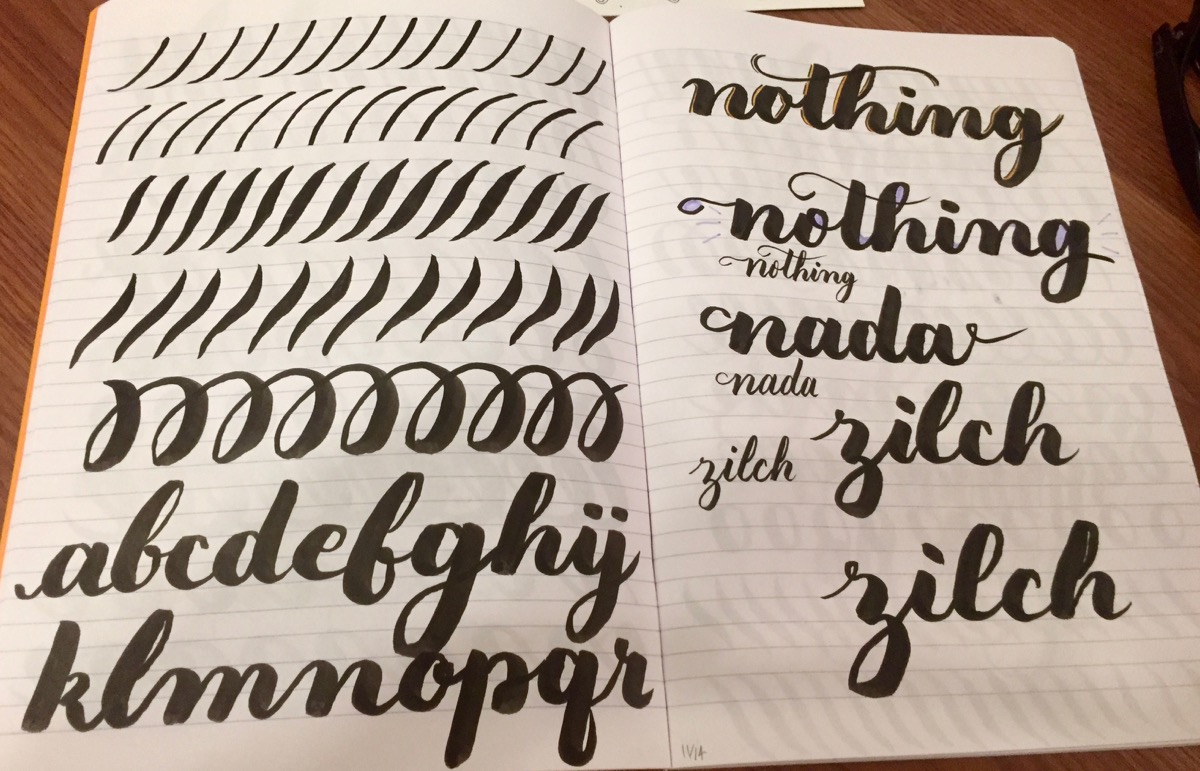 abcdefghij
klmnopqr
nothing
nothing
nothing
nada
nada
zilch
zilch
zilch
11/14